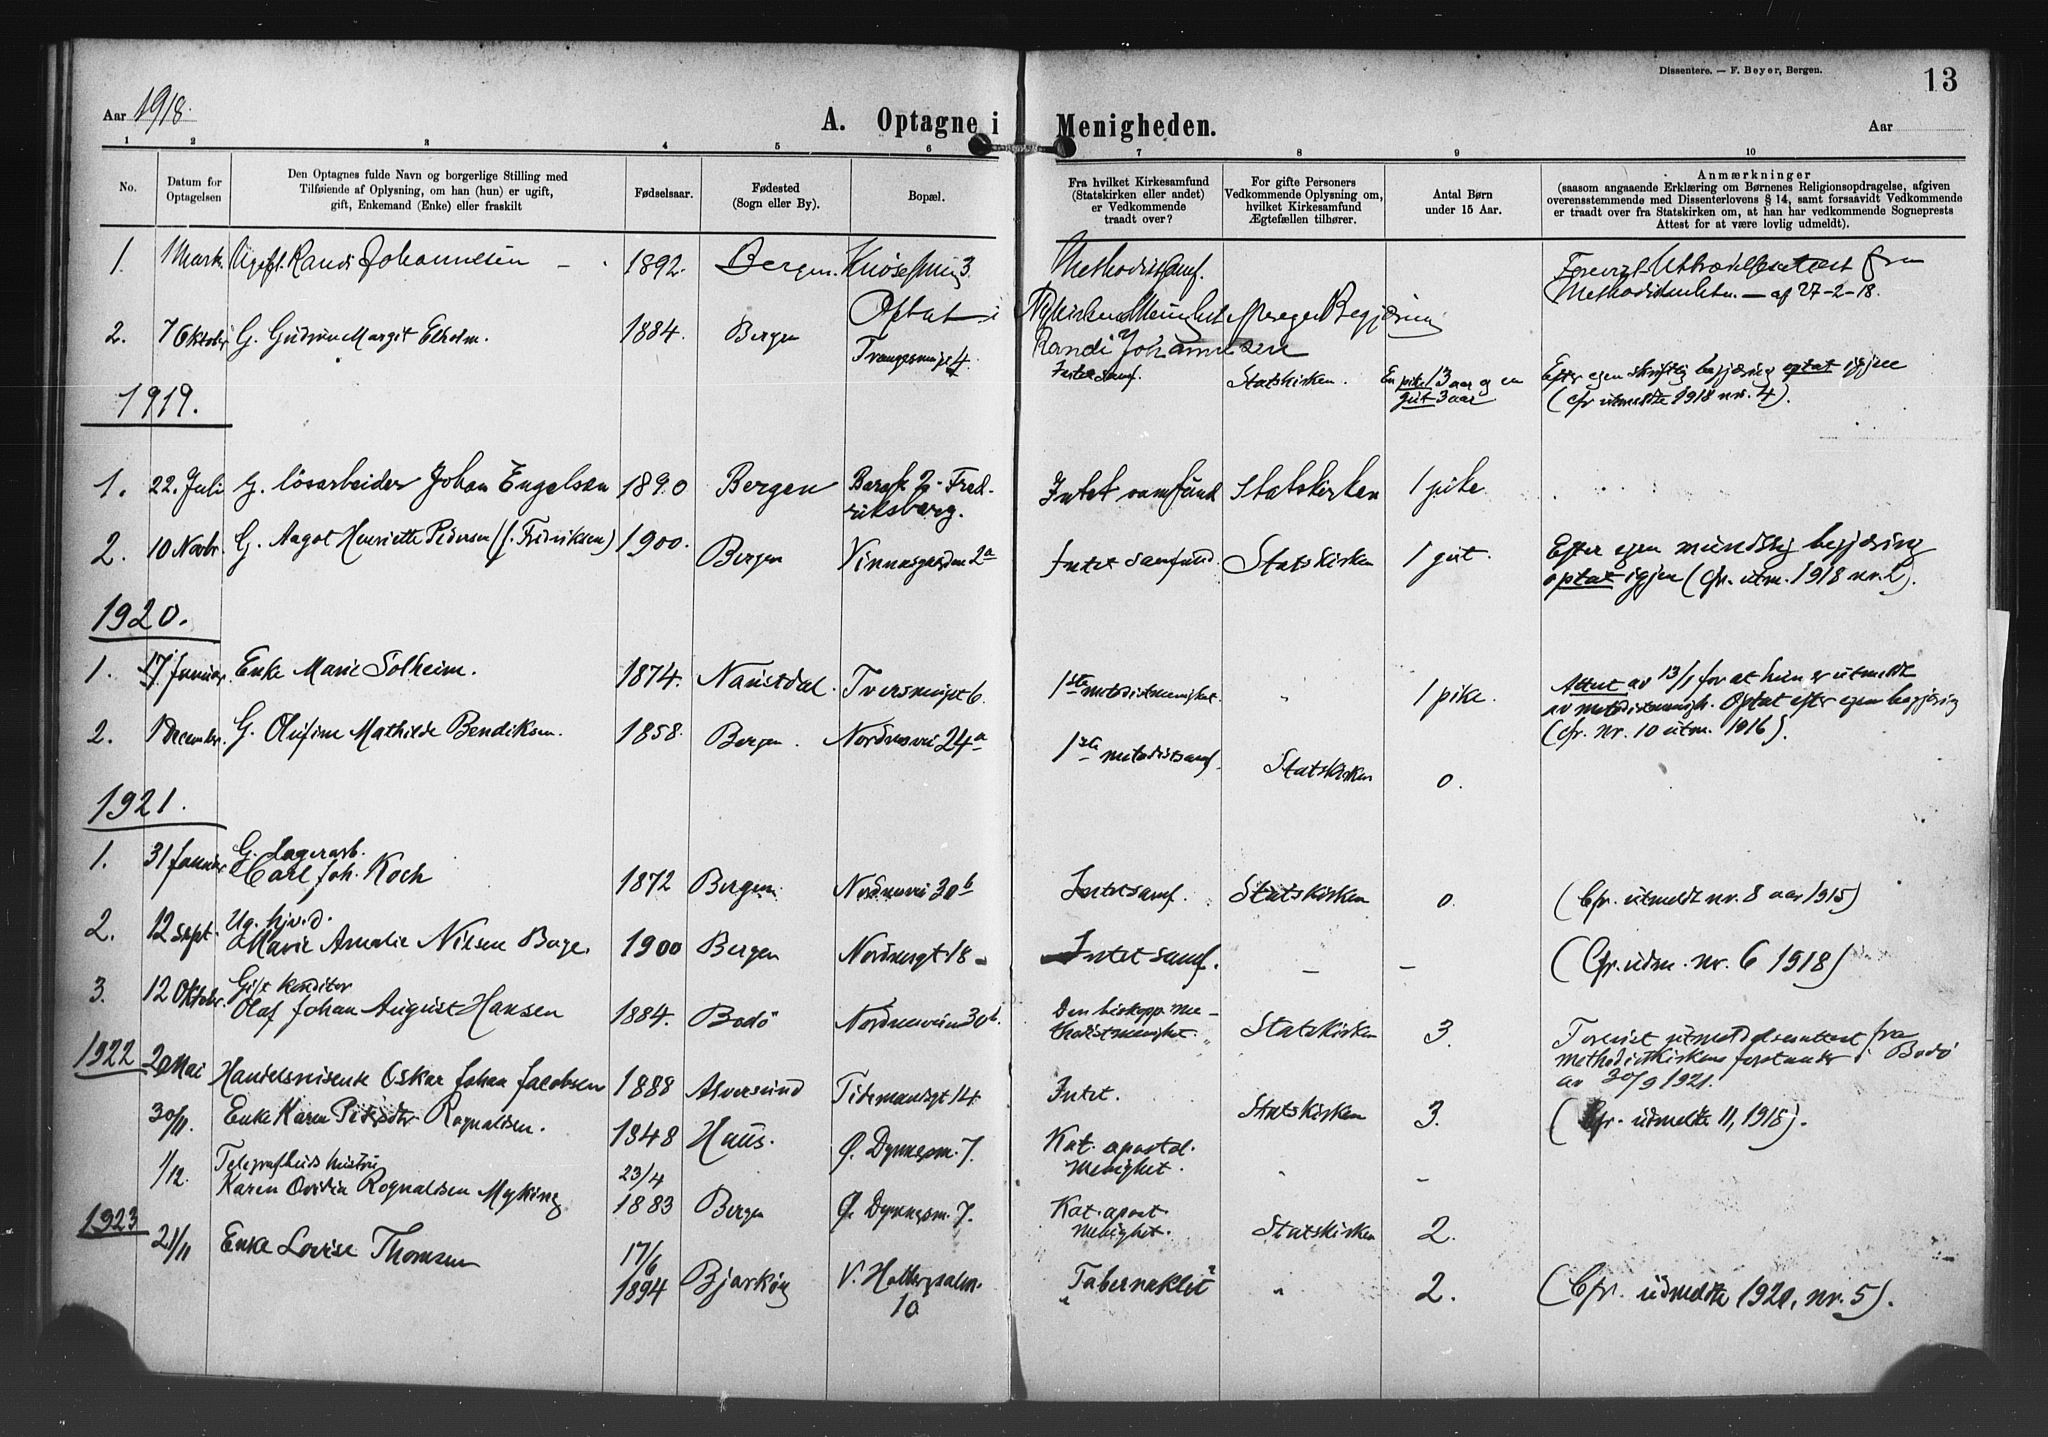 Dissentere. — F. Beyer, Bergen.
13
Aar 1918.
A. Optagne i Menigheden.
Aar
1 2 3 4 5 6 7 8 9 10
No.
Datum for
Optagelsen
Den Optagnes fulde Navn og borgerlige Stilling med
Tilføiende af Oplysning, om han (hun) er ugift,
gift, Enkemand (Enke) eller fraskilt
Fødselsaar.
Fødested
(Sogn eller By).
Bopæl.
Fra hvilket Kirkesamfund
(Statskirken eller andet)
er Vedkommende
traadt over?
For gifte Personers
Vedkommende Oplysning om,
hvilket Kirkesamfund
Ægtefællen tilhører.
Antal Børn
under 15 Aar.
Anmærkninger
(saasom angaaende Erklæring om Børnenes Religionsopdragelse, afgiven
overensstemmende med Dissenterlovens § 14, samt forsaavidt Vedkommende
er traadt over fra Statskirken om, at han har vedkommende Sogneprests
Attest for at være lovlig udmeldt).
1. 1 Mark. Randi Johannesen 1892. Bergen. 3. Methodistsamf. fra
Methodistkirken — af 27-2-18.
Optat i Nykirkens Menighet Begjæring
Randi Johannesen
2. 7 Oktober G. Gudrun Margit 1884. Bergen 4. Intet samf. Statskirken. En pike 13 aar og en
gut 3 aar
Efter egen skriftlig begjæring optat igjen
(cfr utmeldte 1918 nr. 4).
1919.
1. 22. Juli G. løsarbeider Johan Engelsen 1890 Bergen Barak 2 - Fred-
riksberg. Intet samfund Statskirken 1 pike.
2. 10 Novbr. G. Aagot Henriette Pedersen (f. Fredriksen) 1900. Bergen 2a Intet samfund. Statskirken 1 gut.
Efter egen mundtlig begjæring
optat igjen (cfr. utm. 1918 nr. 2).
1920.
1. 17 Januar. Enke Marie Solheim. 1874. Naustdal. 6. 1ste metodistmenighet. „ 1 pike.
Attest av 13/1 for at hun er utmeldt
av metodistmenigh. Optat efter egen begjæring
(cfr. nr. 10 utm. 1916).
2. 1 December. G. Olufine Mathilde Bendiksen. 1858. Bergen. Nordnesvei 24a 1ste metodistsamf. Statskirken 0.
1921.
1. 31 Januar G. lagerarb.
Carl Joh. Koch 1872 Bergen Nordnesvei 30b Intet samf. Statskirken 0. (Cfr. utmeldt nr. 8 aar 1915)
2. 12 sept. Ug.
Marie Amalie Nilsen 1900 Bergen Nordnesgt 18 Intet samf. — — (Cfr. udm. nr. 6 1918)
3. 12 Oktobr. Gift konditor
Olaf Johan August Hansen 1884. Bodö Nordnesveien 30b. Den biskopp. me-
thodistmenighet. Statskirken 3.
Forevist utmeldelsesattest fra
methodistkirkens forstander i Bodö
av 30/9 1921.
1922 20 Mai Handelsreisende Oskar Johan Jacobsen 1888 Alversund Tidemandsgt 14 Intet. Statskirken 3. (Cfr. utmeldte 11, 1918).
30/11. Enke Karen Rognaldsen. 1848 Haus. Ø. Dynnesm. 7. Kat. apostol.
menighet. „ -
1/12. hustru
Karen Ovidia Rognaldsen Myking 23/4
1883 Bergen Ø. Dynnesm. 7. Kat. apost.
menighet. Statskirken 2.
1923 21/11 Enke Lovise Thomsen 17/6
1894 Bjarköy V. Holbergsalm.
10 "Tabernaklet" „ 2. (Cfr. udmeldte 1920, nr. 5).